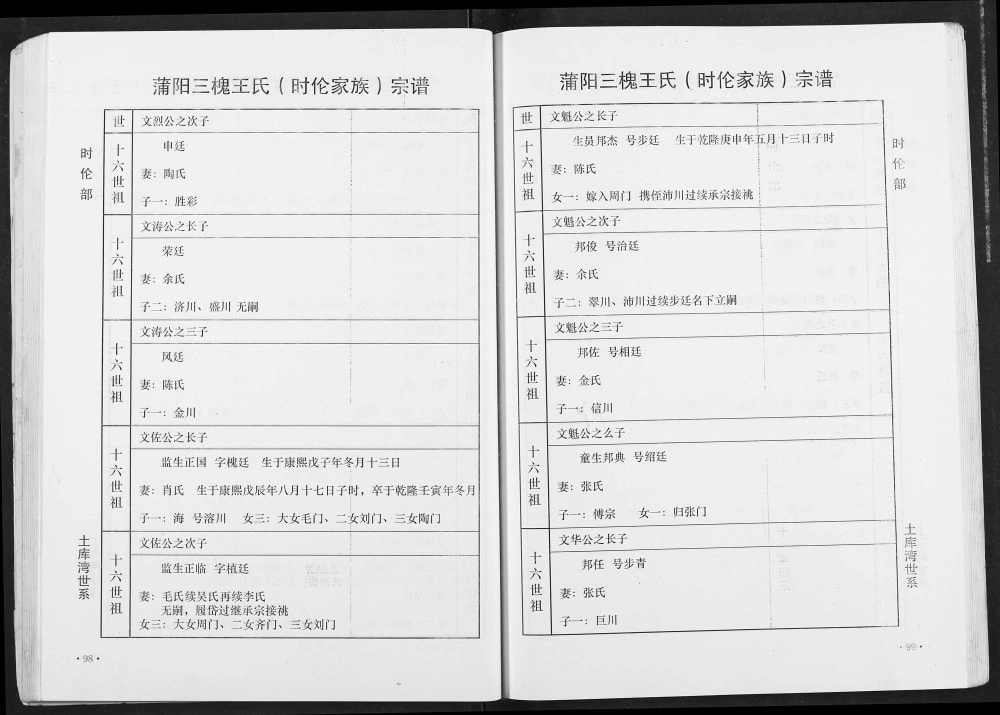 蒲阳三槐王氏（时伦家族）宗谱
时伦部
土库湾世系
世
文烈公之次子
十六世祖
申廷
妻：陶氏
子一：胜彩
文涛公之长子
十六世祖
荣廷
妻：余氏
子二：济川、盛川 无嗣
文涛公之三子
十六世祖
凤廷
妻：陈氏
子一：金川
文佐公之长子
十六世祖
监生正国 字槐廷 生于康熙戊子年冬月十三日
妻：肖氏 生于康熙戊辰年八月十七日子时，卒于乾隆壬寅年冬月
子一：海 号溶川 女三：大女毛门、二女刘门、三女陶门
文佐公之次子
十六世祖
监生正临 字植廷
妻：毛氏续吴氏再续李氏
无嗣，履岱过继承宗接祧
女三：大女周门、二女齐门、三女刘门
·98·
蒲阳三槐王氏（时伦家族）宗谱
世
文魁公之长子
十六世祖
生员邦杰 号步廷 生于乾隆庚申年五月十三日子时
妻：陈氏
女一：嫁入周门 携侄沛川过续承宗接祧
文魁公之次子
十六世祖
邦俊 号治廷
妻：余氏
子二：翠川、沛川过续步廷名下立嗣
文魁公之三子
十六世祖
邦佐 号相廷
妻：金氏
子一：信川
文魁公之么子
十六世祖
童生邦典 号绍廷
妻：张氏
子一：傅宗 女一：归张门
文华公之长子
十六世祖
邦任 号步青
妻：张氏
子一：巨川
时伦部
土库湾世系
·99·